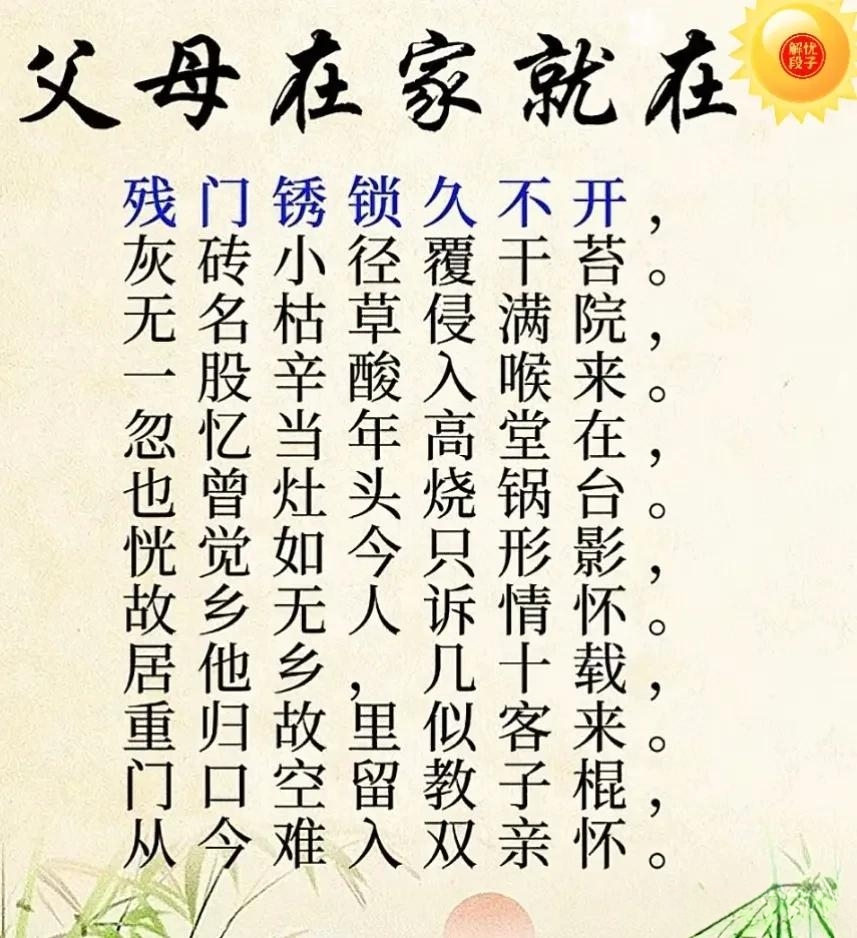 父母在家就在
解忧
段子
残门锈锁久不开，
灰砖小径覆干苔。
无名枯草侵满院，
一股辛酸入喉来。
忽忆当年高堂在，
也曾灶头烧锅台。
恍觉如今只形影，
故乡无人诉情怀。
居他乡，几十载，
重归故里似客来。
门口空留教子棍，
从今难入双亲怀。